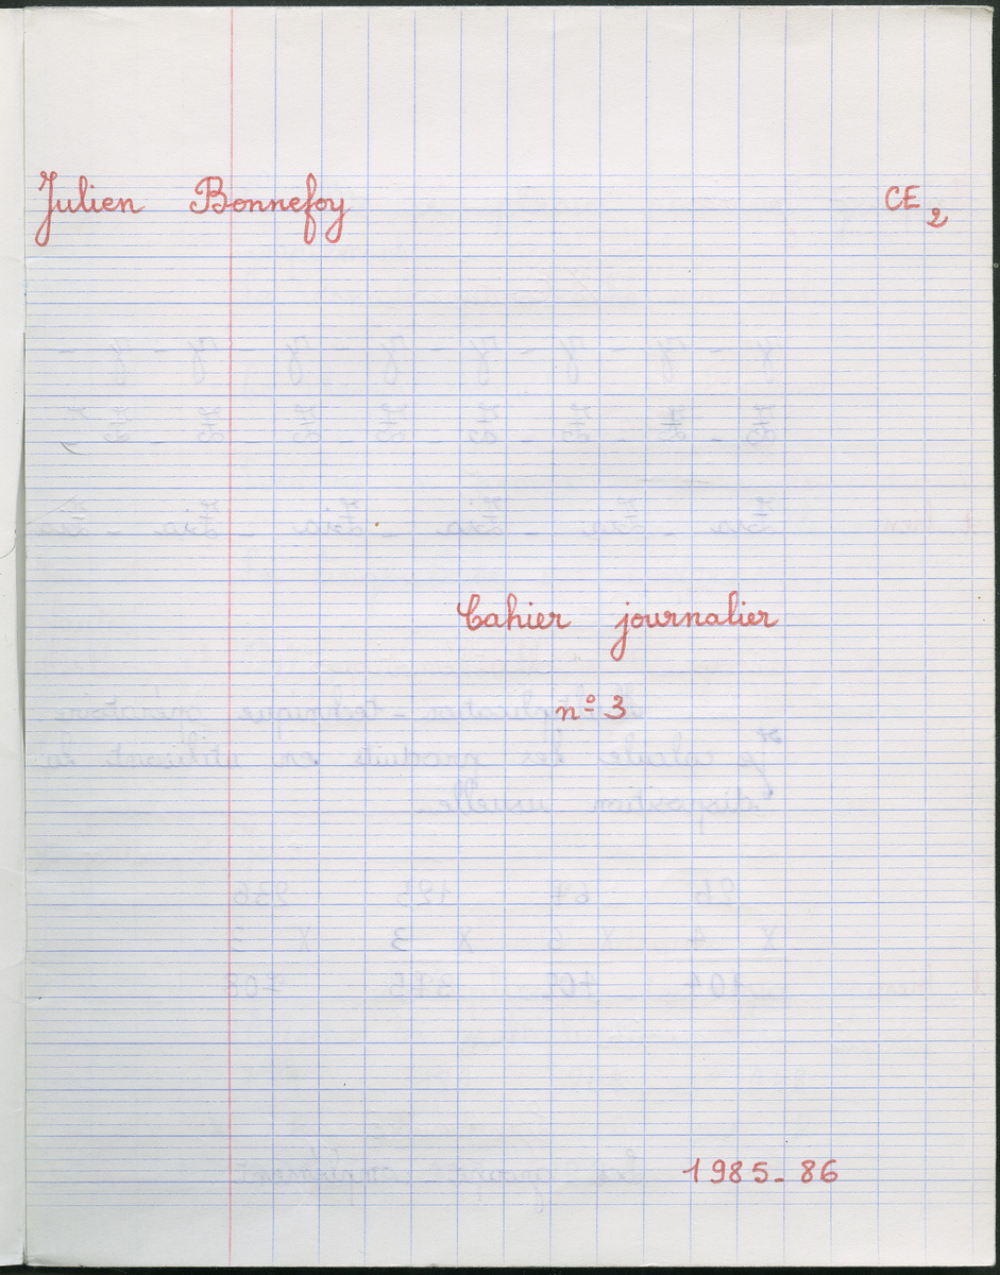 Julien Bonnefoy CE2
Cahier journalier
nº 3
1985-86